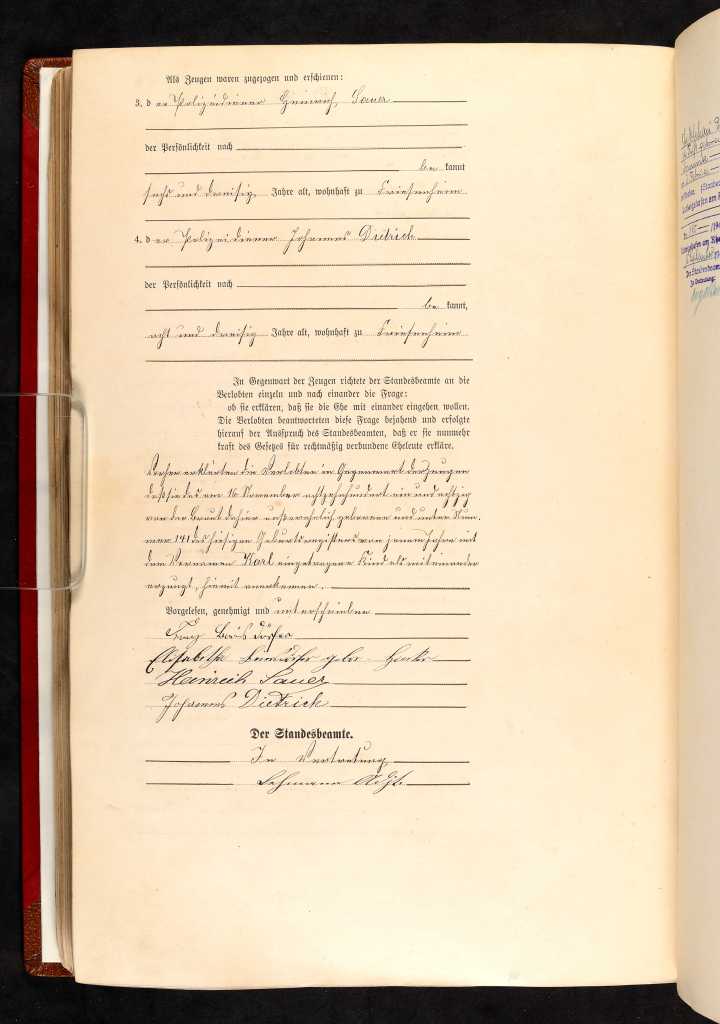 Als Zeugen waren zugezogen und erschienen:
3. der Polizeidiener Heinrich Sauer
der Persönlichkeit nach
be kannt
sechs und dreisig Jahre alt, wohnhaft zu Friesenheim
4. der Polizeidiener Johannes Dietrich
der Persönlichkeit nach
be kannt,
acht und dreisig Jahre alt, wohnhaft zu Friesenheim
In Gegenwart der Zeugen richtete der Standesbeamte an die
Verlobten einzeln und nach einander die Frage:
ob sie erklären, daß sie die Ehe mit einander eingehen wollen.
Die Verlobten beantworteten diese Frage bejahend und erfolgte
hierauf der Ausspruch des Standesbeamten, daß er sie nunmehr
kraft des Gesetzes für rechtmäßig verbundene Eheleute erkläre.
erklärten die Verlobten in Gegenwart der Zeugen
daß sie das am 16 November achtzehnhundert ein und achtzig
von der Braut dahier außerehelich geborene und unter Num-
mer 141 des hiesigen Geburtsregisters von jenem Jahre mit
dem Vornamen Karl eingetragene Kind als miteinander
erzeugt, hiermit anerkennen.
Vorgelesen, genehmigt und unterschrieben
Elisabetha geb.
Heinrich Sauer
Johannes Dietrich
Der Standesbeamte.
In Vertretung
Lehmann Adjt.